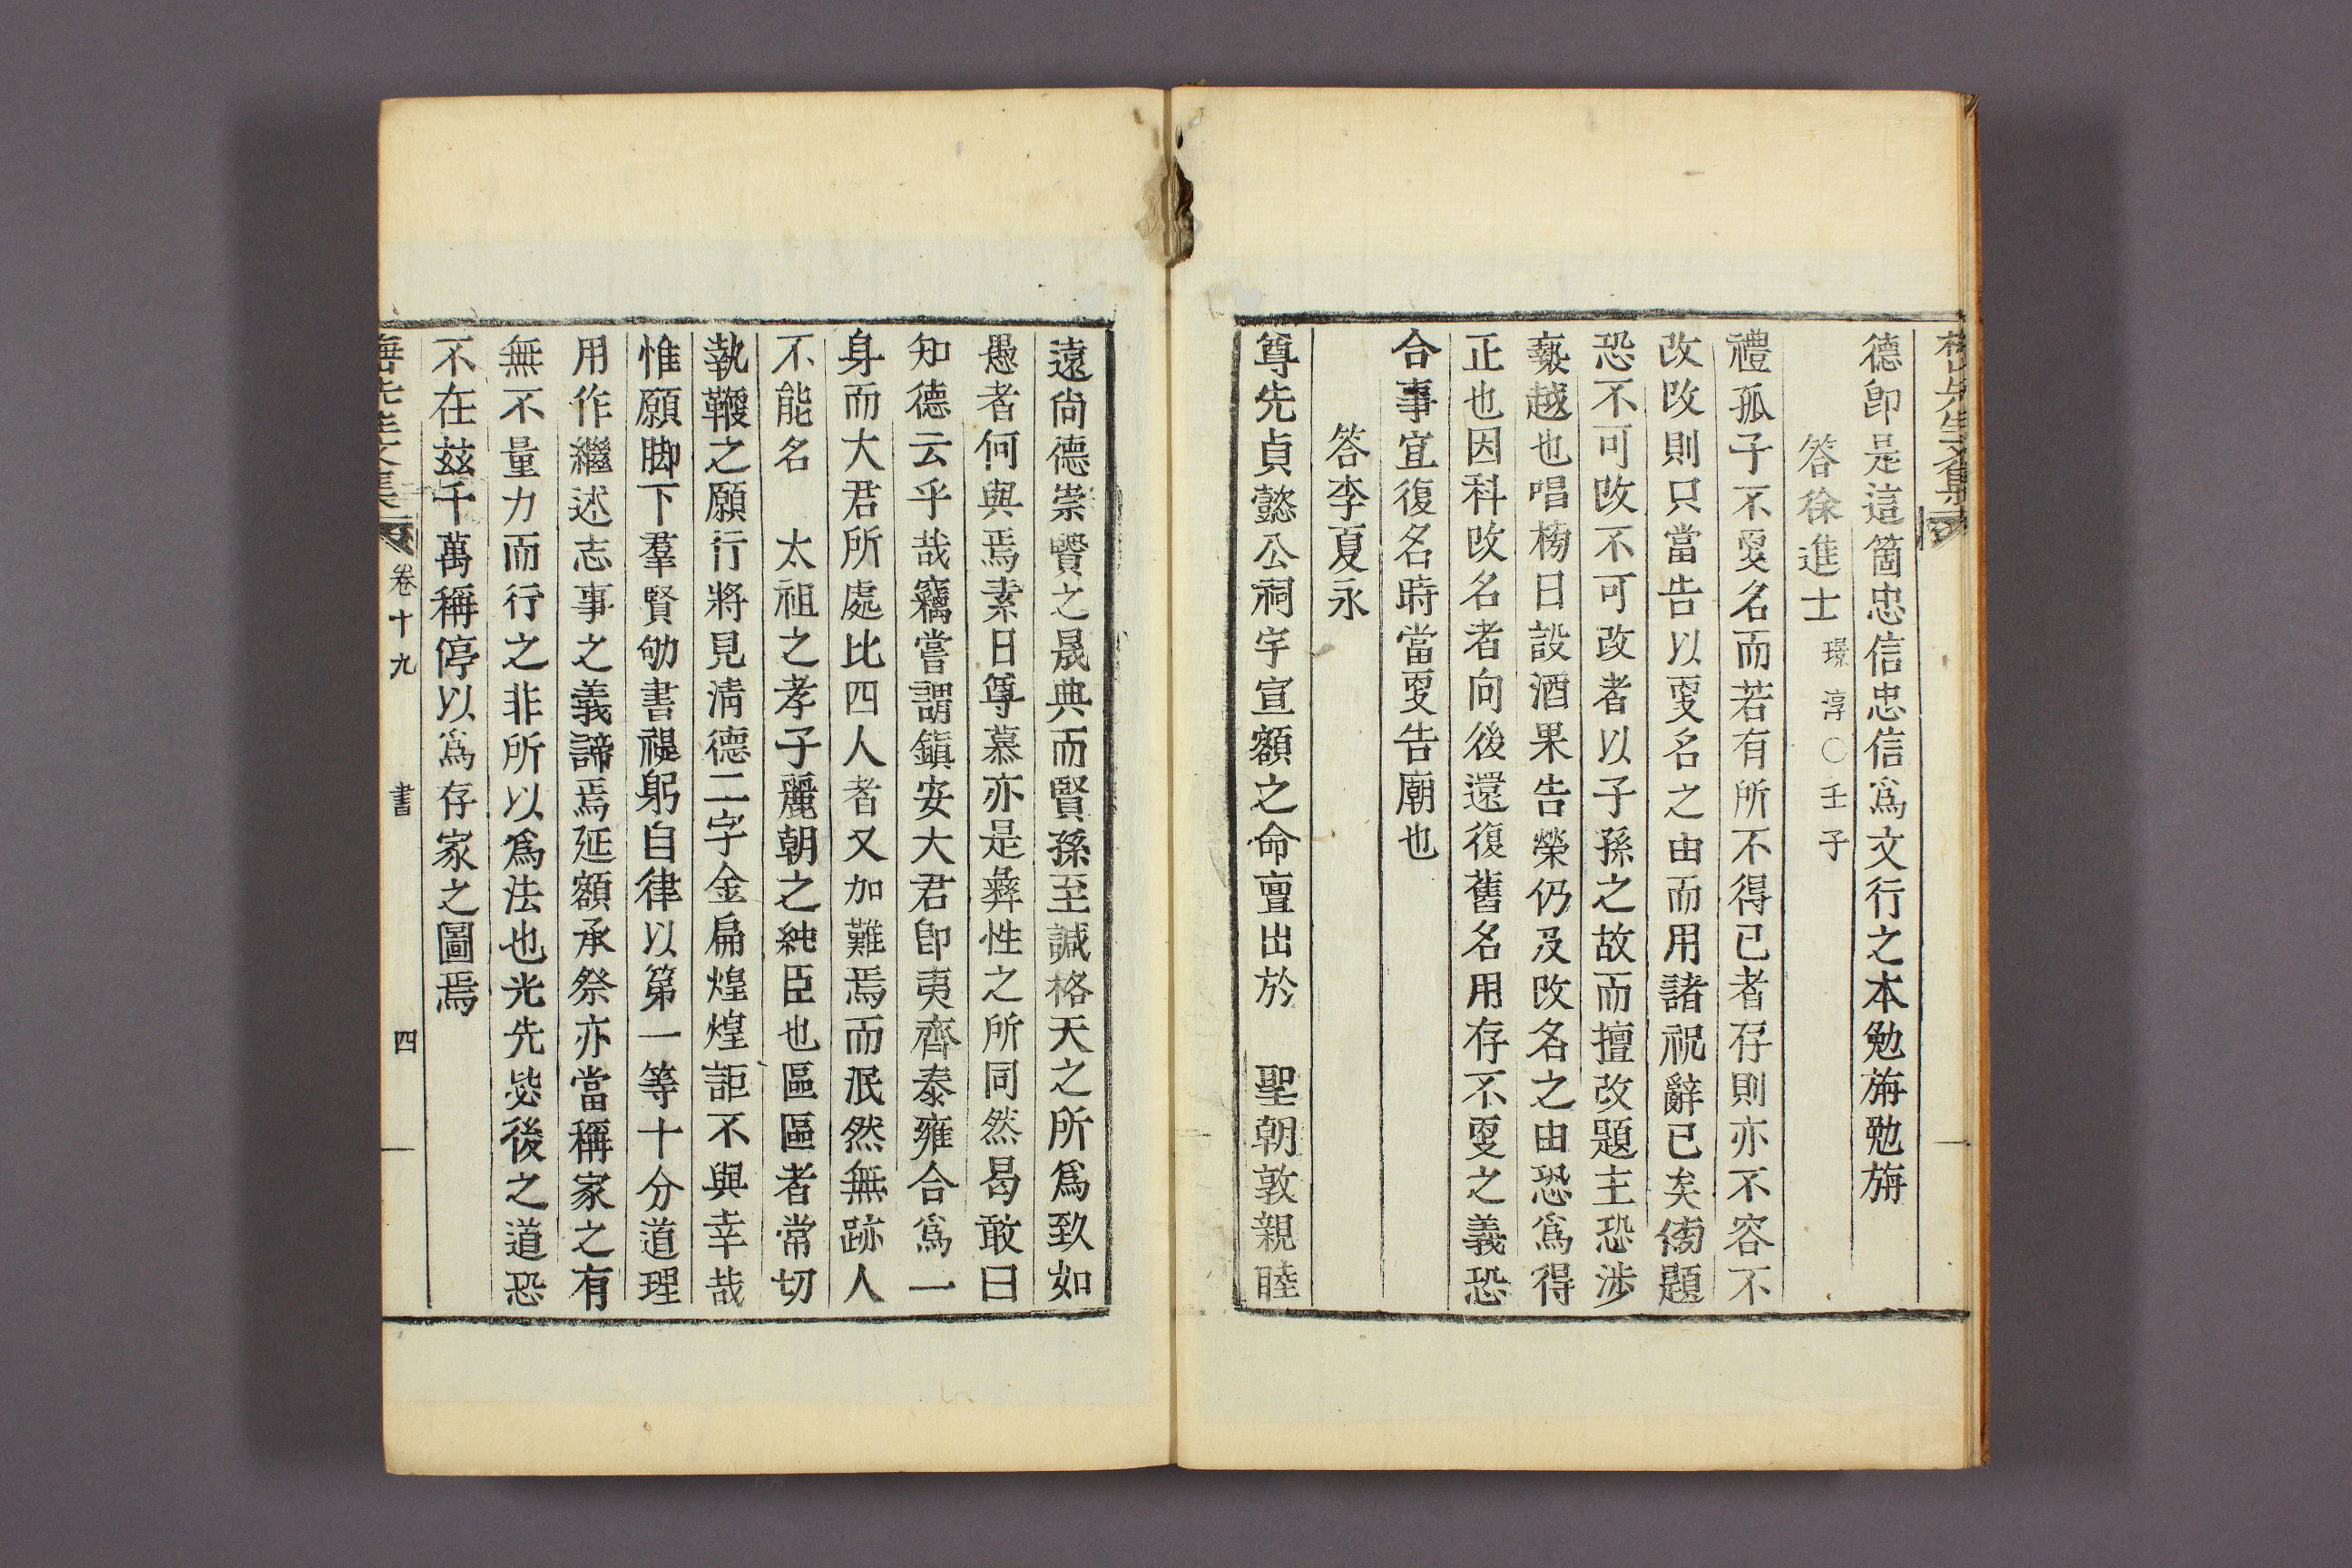 德卽是這箇忠信忠信爲文行之本勉旃勉旃
答徐進士 璟淳○壬子
禮孤子不更名而若有所不得已者存則亦不容不
改改則只當告以更名之由而用諸祝辭已矣傍題
恐不可改不可改者以子孫之故而擅改題主恐涉
褻越也唱榜日設酒果告榮仍及改名之由恐爲得
正也因科改名者向後還復舊名用存不更之義恐
合事宜復名時當更告廟也
答李夏永
尊先貞懿公祠宇宣額之命亶出於 聖朝敦親睦
遠尙德崇賢之晟典而賢孫至諴格天之所爲致如
愚者何與焉素日尊慕亦是彝性之所同然曷敢曰
知德云乎哉竊嘗謂鎭安大君卽夷齊泰雍合爲一
身而大君所處比四人者又加難焉而泯然無跡人
不能名 太祖之孝子麗朝之純臣也區區者常切
執鞭之願行將見淸德二字金扁煌煌詎不與幸哉
惟願脚下羣賢劬書禔躬自律以第一等十分道理
用作繼述志事之義諦焉延額承祭亦當稱家之有
無不量力而行之非所以爲法也光先毖後之道恐
不在玆千萬稱停以爲存家之圖焉
卷十九 書 四